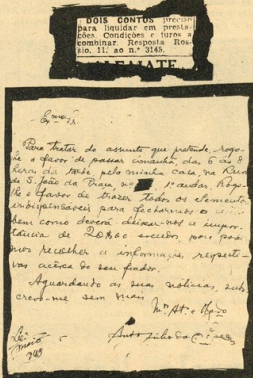 DOIS CONTOS preciso
para liquidar em presta-
ções. Condições e juros a
combinar. Resposta Ros-
sio, 11. ao n.º 3145.
Para tratar do assunto que pretende, rogo-
lhe o favor de passar amanhã, das 6 às 8
horas da tarde pela minha casa, na Rua
de S. João da Praça, nº 1º andar. Rogo-
lhe o favor de trazer todos os elementos
indispensáveis para
bem como deverá deixar-nos a impor-
tância de 20$00 escudos para
nos recolher a informação respecti-
vas acêrca do seu fiador.
Aguardando as suas notícias, subs-
crevo-me sem mais